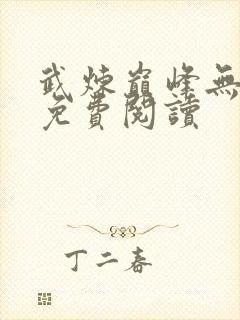 武煉巔峰無
免費閱讀
丁二春